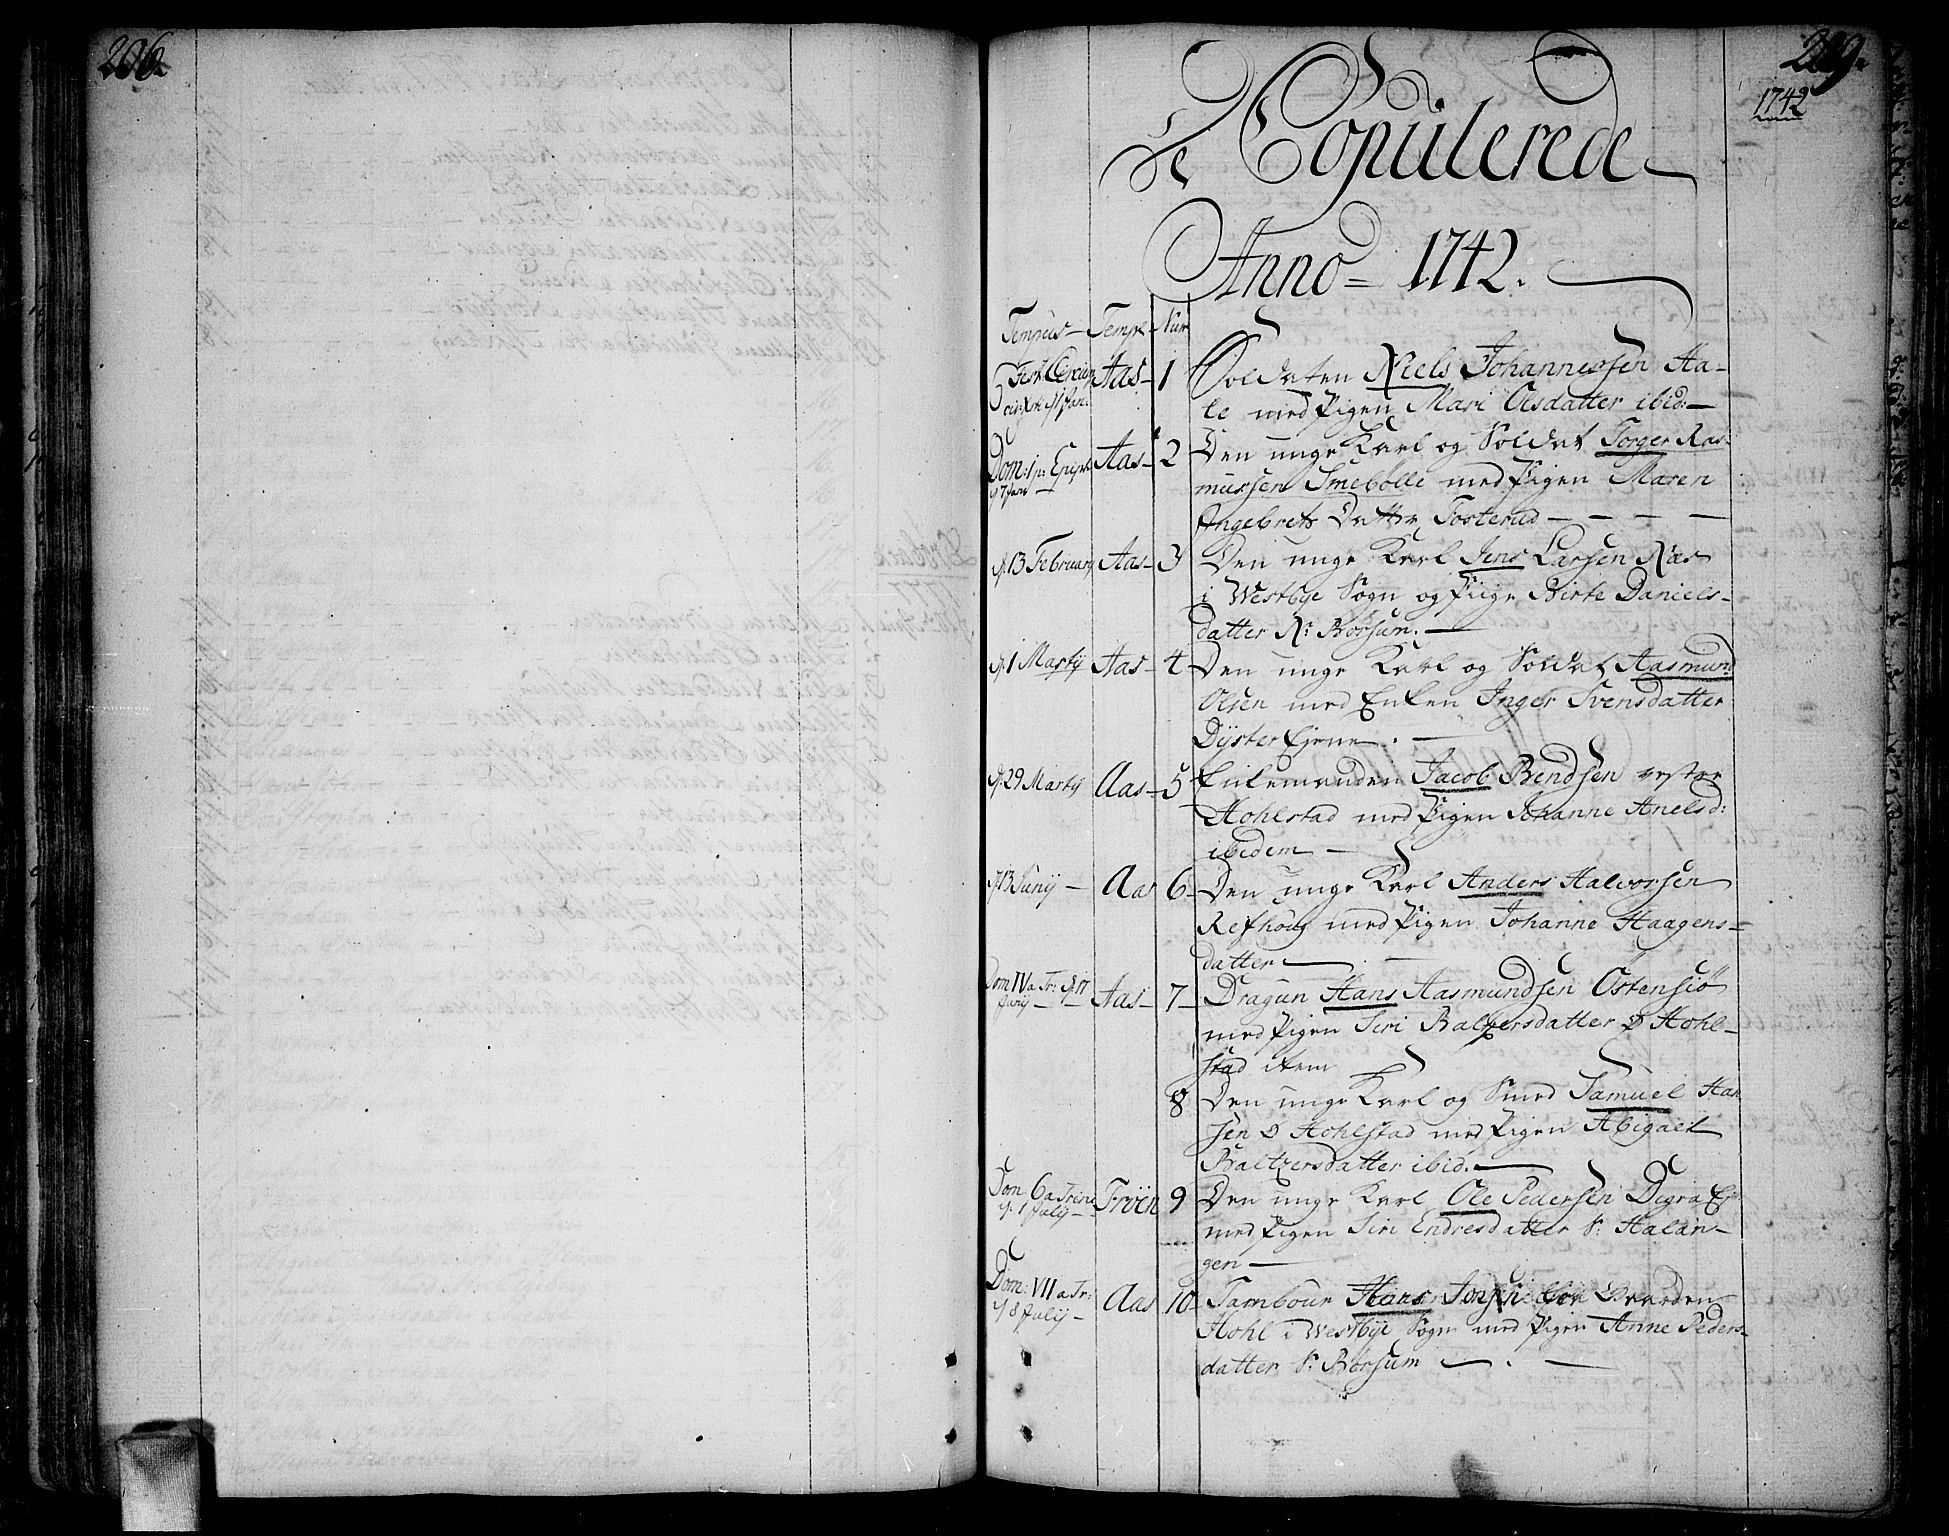 206.
209.
1742
De Copulerede
Anno = 1742.
Tempus — Templ Num
Fest: Circum Aas — 1 Soldaten Niels Johannessen Aa-
cis: Xsti d. 1 Jan. le med Pigen Mari Olsdatter ibid: —
Dom: 1 p: Epiph Aas — 2 Den unge Karl og Soldat Torger Ras-
d. 7 Jan mussen Smebølle med Pigen Maren
Ingebrets Datter Fosterud — — — —
d. 13 February Aas — 3 Den unge Karl Jens Larsen Næs
i Westbye Sogn og Piige Birte Daniels-
datter N: Borsum. —
d. 1 Martij Aas — 4 Den unge Karl og Soldat Aasmund
Olsen med Enken Inger Svensdatter
Dyster Ejene. —
d. 29 Martij Aas — 5 Enkemanden Jacob Bendsen vestre
Hohlstad med Pigen Johanne Anelsd:
ibidem —
d. 13 Junij — Aas 6 — Den unge Karl Anders Halvorsen
Refhoug med Pigen Johanne Haagens=
datter — . —
Dom IV a Tr: d. 17 Aas — 7 — Dragun Hans Aasmundsen Östensiö
Junij — med Pigen Siri Baltzersdatter Ø Hohl-
stad item
8 Den unge Karl og Smed Samuel Han
sen Ø Hohlstad med Pigen Abigael
Baltzersdatter ibid. —
Dom 6 a Trini Fröen 9 Den unge Karl Ole Pedersen Digra Ej
d. 1 Julij — med Pigen Siri Endresdatter S: Halan-
gen —
Dom: VII a Tr: Aas 10 Tambour Hans
d. 8 Julij — Hohl i Westbye Sogn med Pigen Anne Peders-
datter S: Borsum — . —